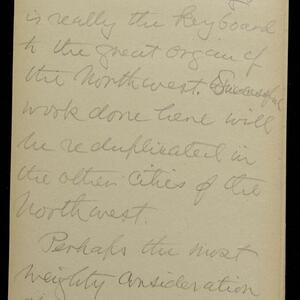 is really the keyboard
to the great organ of
the Northwest. Successful
work done here will
be reduplicated in
the other cities of the
Northwest.
Perhaps the most
weighty consideration